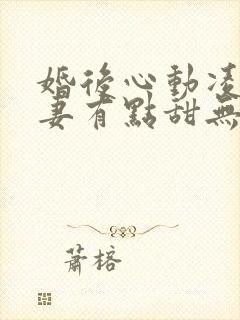 婚後心動凌
妻有點甜無
蕭榕